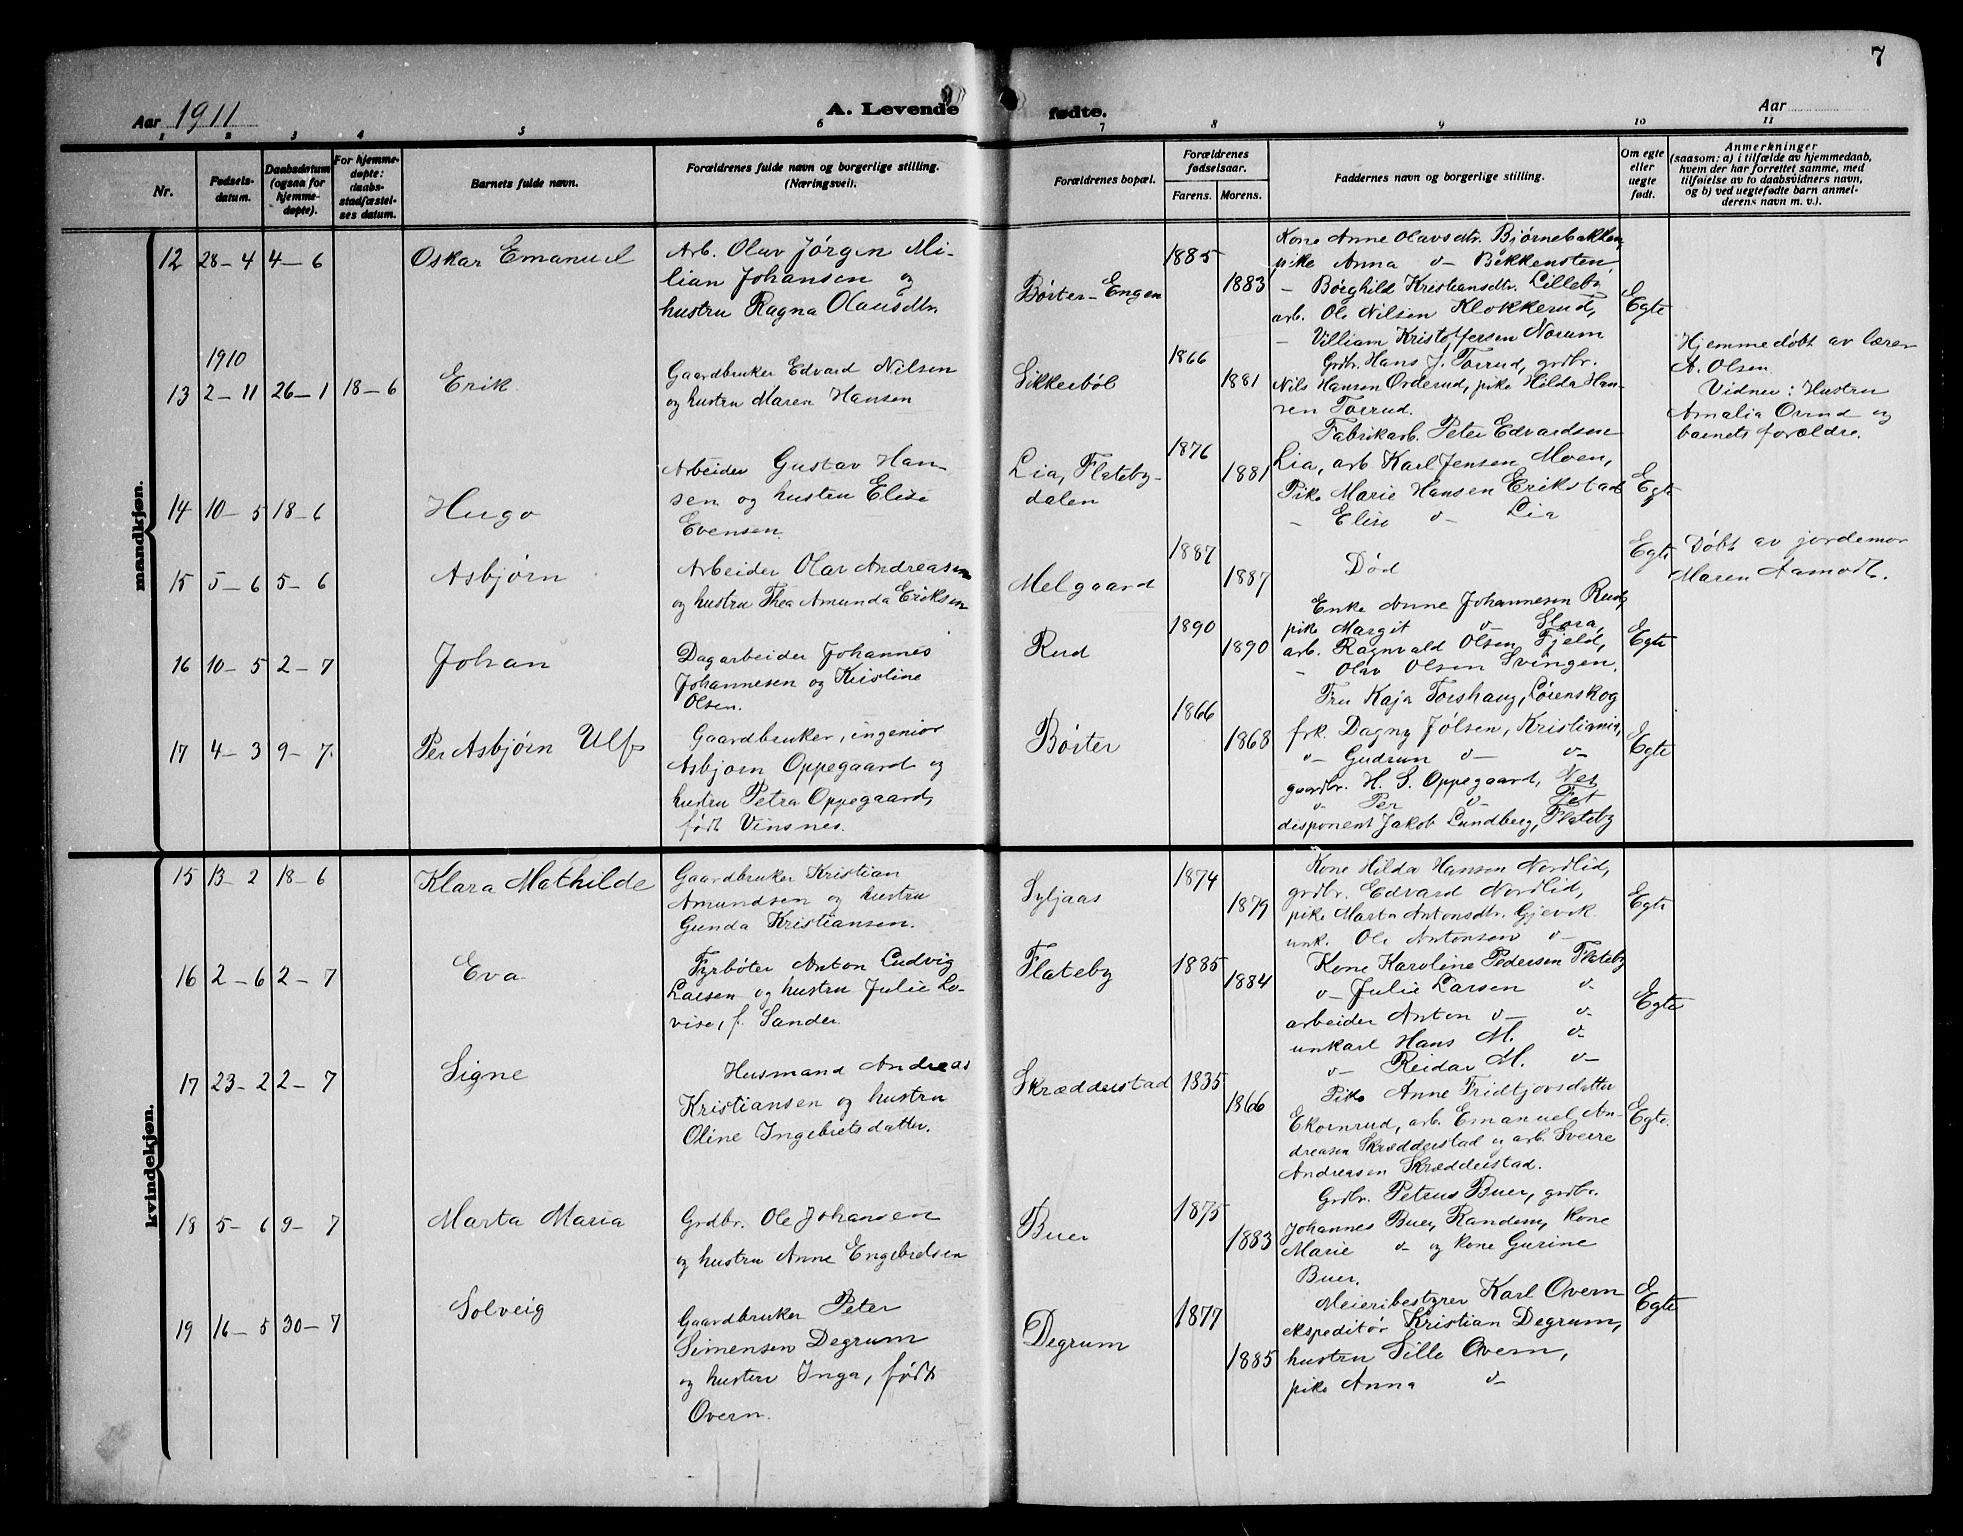 7
Aar 1911
A. Levende fødte.
Aar
1 2 3 4 5 6 7 8 9 10 11
Nr.
Fødsels-
datum.
Daabsdatum
(ogsaa for
hjemme-
døpte).
For hjemme-
døpte:
daabs-
stadfæstel-
ses datum.
Barnets fulde navn.
Forældrenes fulde navn og borgerlige stilling.
(Næringsvei).
Forældrenes bopæl.
Forældrenes
fødselsaar.
Farens. Morens.
Faddernes navn og borgerlige stilling.
Om egte
eller
uegte
født.
Anmerkninger
(saasom: a) i tilfælde av hjemmedaab,
hvem der har forrettet samme, med
tilføielse av to daabsvidners navn,
og b) ved uegtefødte barn anmel-
derens navn m. v.).
mandkjøn.
12 28-4 4-6
Oskar Emanuel
Arb. Olav Jørgen Mi-
lian Johansen og
hustru Ragna Olausdtr.
Børter-Engen
1885
1883
Kone Anne Olavsdtr. Bjørnebakken,
pike Anna v- Bikkensten,
- Borghild Kristiansdtr. Lilleby,
arb. Ole Nilsen Klokkerud,
- Villiam Kristoffersen Norum
Egte
1910
13 2-11 26-1 18-6
Erik
Gaardbruker Edvard Nilsen
og hustru Maren Hansen
Sikkerbøl
1866
1881
Grdbr. Hans J. Torrud, grdbr.
Nils Hansen Orderud, pike Hilda Han-
sen Torrud.
Hjemmedøbt av lærer
A. Olsen.
Vidner: Hustru
Amalia Ovind og
barnets forældre.
14 10-5 18-6
Hugo
Arbeider Gustav Han
sen og hustru Elise
Evensen.
Lia, Flateby-
dalen
1876
1881
Fabrikarb. Peter Edvardsen
Lia, arb. Karl Jensen Moen,
Pike Marie Hansen Erikstad
- Elise v- Lia
Egte
15 5-6 5-6
Asbjørn
Arbeider Olav Andreasen
og hustru Thea Amunda Eriksen
Melgaard
1887
1887
Død
Egte
Døbt av jordemor
Maren Aamodt.
16 10-5 2-7
Johan
Dagarbeider Johannes
Johannesen og Kristine
Olsen.
Rud
1890
1890
Enke Anne Johannesen Rud,
pike Margit v- Slora,
arb. Ragnvald Olsen Fjeld,
- Olav Olsen Svingen.
Egte
17 4-3 9-7.
Per Asbjørn Ulf
Gaardbruker, ingeniør
Asbjørn Oppegaard og
hustru Petra Oppegaard,
født Vinsnes.
Børter
1866
1868
Fru Kaja Torshaug, Lørenskog
frk. Dagny Jølsen, Kristiania,
v- Gudrun v- v-
gaardbr. H. S. Oppegaard, Nes
v- Per v- Fet
disponent Jakob Lundberg, Flateby
Egte
kvindekjøn.
15 13-2 18-6
Klara Mathilde
Gaardbruker Kristian
Amundsen og hustru
Gunda Kristiansen.
Syljaas
1874
1879
Kone Hilda Hansen Nordlid,
grdbr. Edvard Nordlid,
pike Marta Antonsdtr. Gjevik
unk. Ole Antonsen v-
Egte
16 2-6 2-7
Eva
Fyrbøter Anton Ludvig
Larsen og hustru Julie Lo-
vise, f. Sander.
Flateby
1885
1884
Kone Karoline Pedersen Flateby
v- Julie Larsen v-
arbeider Anton v- v-
unkarl Hans M. v-
v- Reidar M. v-
Egte
17 23-2 2-7
Signe
Husmand Andreas
Kristiansen og hustru
Oline Ingebretsdatter.
Skrædderstad
1835
1866
Pike Anne Fridtjovsdatter
Ekornrud, arb. Emanuel An-
dreasen Skrædderstad og arb. Sverre
Andreasen Skrædderstad.
Egte.
18 5-6 9-7
Marta Maria
Grdbr. Ole Johansen
og hustru Anne Engebretsen
Buer
1875
1883
Grdbr. Petrus Buer, grdbr.
Johannes Buer, Randem, kone
Marie v- og kone Gurine
Buer.
19 16-5 30-7
Solveig
Gaardbruker Peter
Simensen Degrum
og hustru Inga, født
Overn.
Degrum
1877
1885
Meieribestyrer Karl Overn
ekspeditør Kristian Degrum,
hustru Sille Overn,
pike Anna v-
Egte